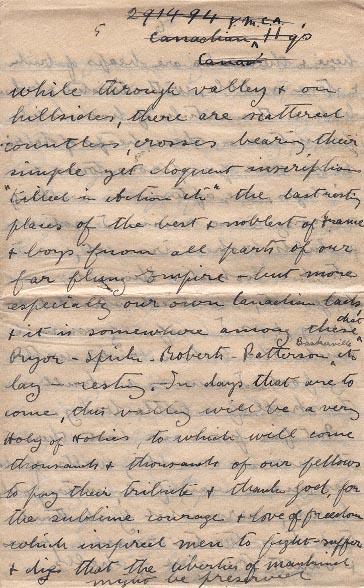 5
291494 Y.M.C.A.
Canadian, 11 
Canad
while through valley & on
hillsides, there are scattered
countless, crosses bearing their
simple yet eloquent inscription
"Killed in Action" the last resting
places of the best & noblest of France
& boys from all parts of our
far flung Empire - but more
especially our own Canadian lads
& it is somewhere among these that
Pryor - Spirh. Roberts - Patterson Baskerville
lay - resting. In days that are to
come, this valley will be a very
Holy of Holies, to which will come
thousands & thousands of our fellows
to pay their tribute & thank God, for
the sublime courage & love of freedom
which inspired men to fight - suffer
& die that the liberties of mankind
might be preserved